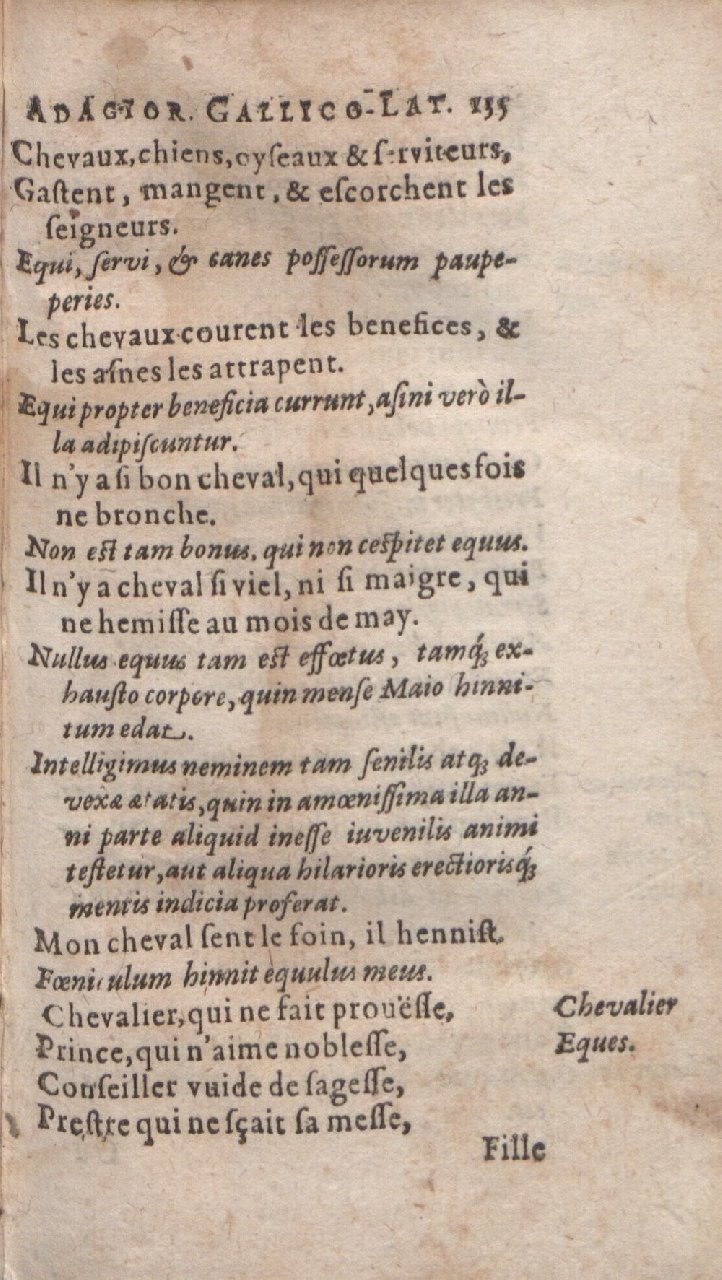 ADAGIOR. GALLICO-LAT. 155
Chevaux, chiens, oyseaux & serviteurs,
Gastent, mangent, & escorchent les
seigneurs.
Equi, servi, & canes possessorum paupe-
peries.
Les chevaux courent les benefices, &
les asnes les attrapent.
Equi propter beneficia currunt, asini verò il-
la adipiscuntur.
Il n'y a si bon cheval, qui quelquesfois
ne bronche.
Non est tam bonus, qui non cespitet equus.
Il n'y a cheval si viel, ni si maigre, qui
ne hemisse au mois de may.
Nullus equus tam est effœtus, tamq́; ex-
hausto corpore, quin mense Maio hinni-
tum edat.
Intelligimus neminem tam senilis atq; de-
vexæ ætatis, quin in amœnissima illa an-
ni parte aliquid inesse iuvenilis animi
testetur, aut aliqua hilarioris erectiorisq́;
mentis indicia proferat.
Mon cheval sent le foin, il hennist.
Fœniculum hinnit equulus meus.
Chevalier, qui ne fait prouësse,
Chevalier
Prince, qui n'aime noblesse,
Eques.
Conseiller vuide de sagesse,
Prestre qui ne sçait sa messe,
Fille